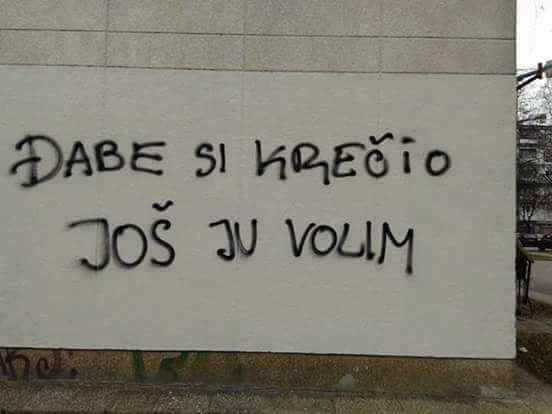 ĐABE SI KREČIO
JOŠ JU VOLIM